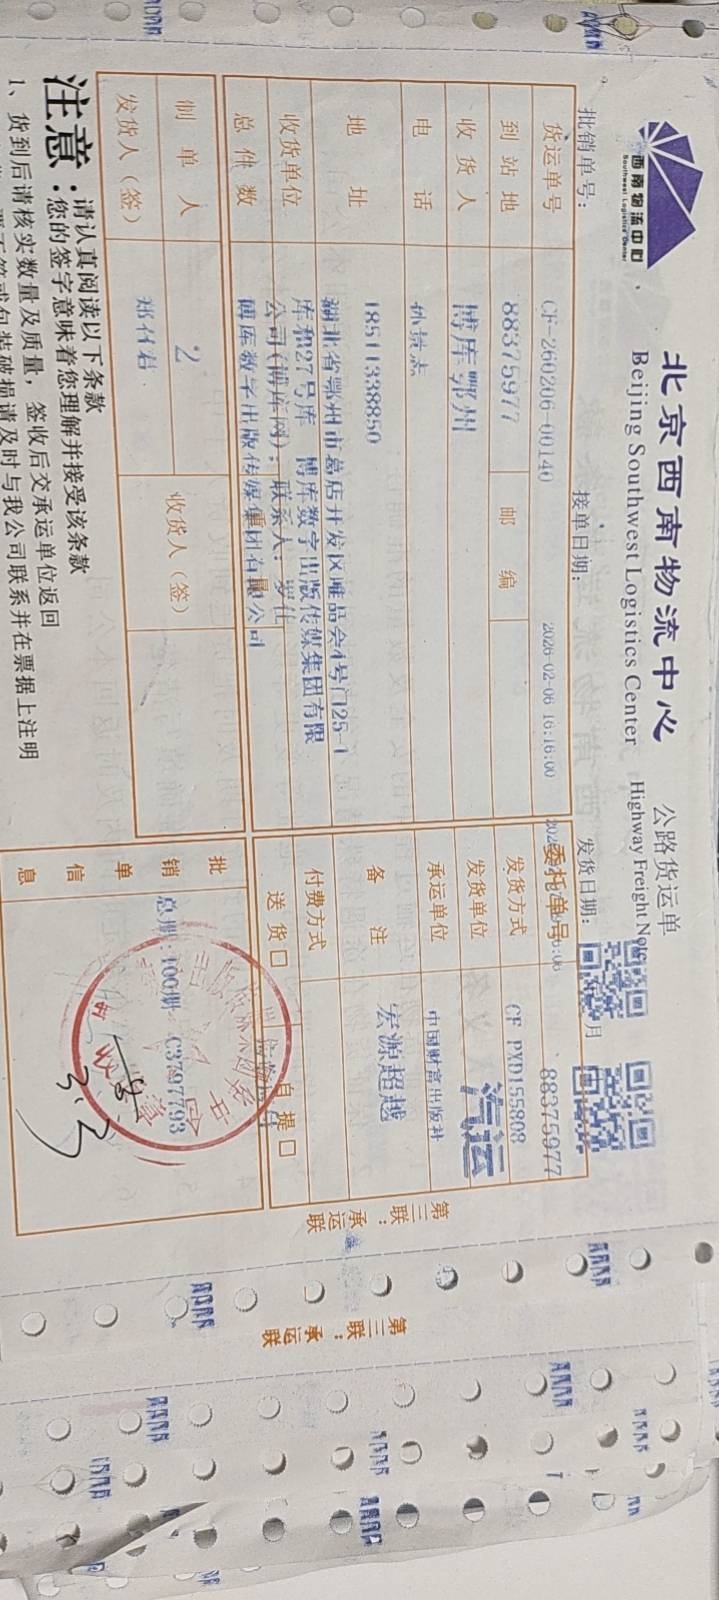 西南物流中心
Southwest Logistics Center
北京西南物流中心 公路货运单
Beijing Southwest Logistics Center Highway Freight Note
批销单号： 接单日期： 发货日期： 月
货运单号 CF-260206-00140 2026-02-06 16:16:00 委托单号 88375977
到站地 88375977 邮编 发货方式 CF PXD155808
收货人 博库鄂州 发货单位 汽运
电话 孙景志 承运单位 中国财富出版社
地址 18511338850 备注 宏源超越
湖北省鄂州市葛店开发区唯品会4号门25-1
库和27号库 博库数字出版传媒集团有限
收货单位 公司(博库网)；联系人：罗仕 付费方式
总件数 博库数字出版传媒集团有限公司 送货□ 自提□
制单人 2 收货人（签）
发货人（签） 郑召君
批销单信息 总期：100期 C3797793
3.3
注意：请认真阅读以下条款
您的签字意味着您理解并接受该条款
1、货到后请核实数量及质量，签收后交承运单位返回
票据上注明
第三联：承运联
第三联：承运联